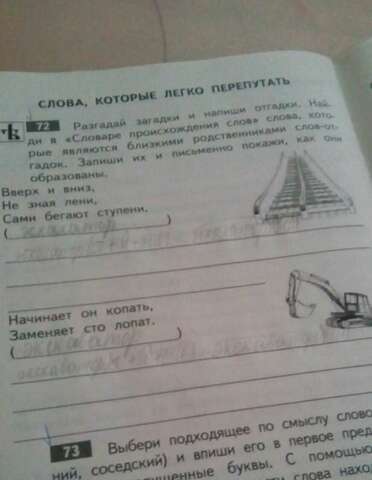 СЛОВА, КОТОРЫЕ ЛЕГКО ПЕРЕПУТАТЬ
72 Разгадай загадки и напиши отгадки. Най-
ди в «Словаре происхождения слов» слова, кото-
рые являются близкими родственниками слов-от-
гадок. Запиши их и письменно покажи, как они
образованы.
Вверх и вниз,
Не зная лени,
Сами бегают ступени.
(эскалатор)
Начинает он копать,
Заменяет сто лопат.
(экскаватор)
73 Выбери подходящее по смыслу слово
ний, соседский) и впиши его в первое пред
буквы. С помощью
слова наход